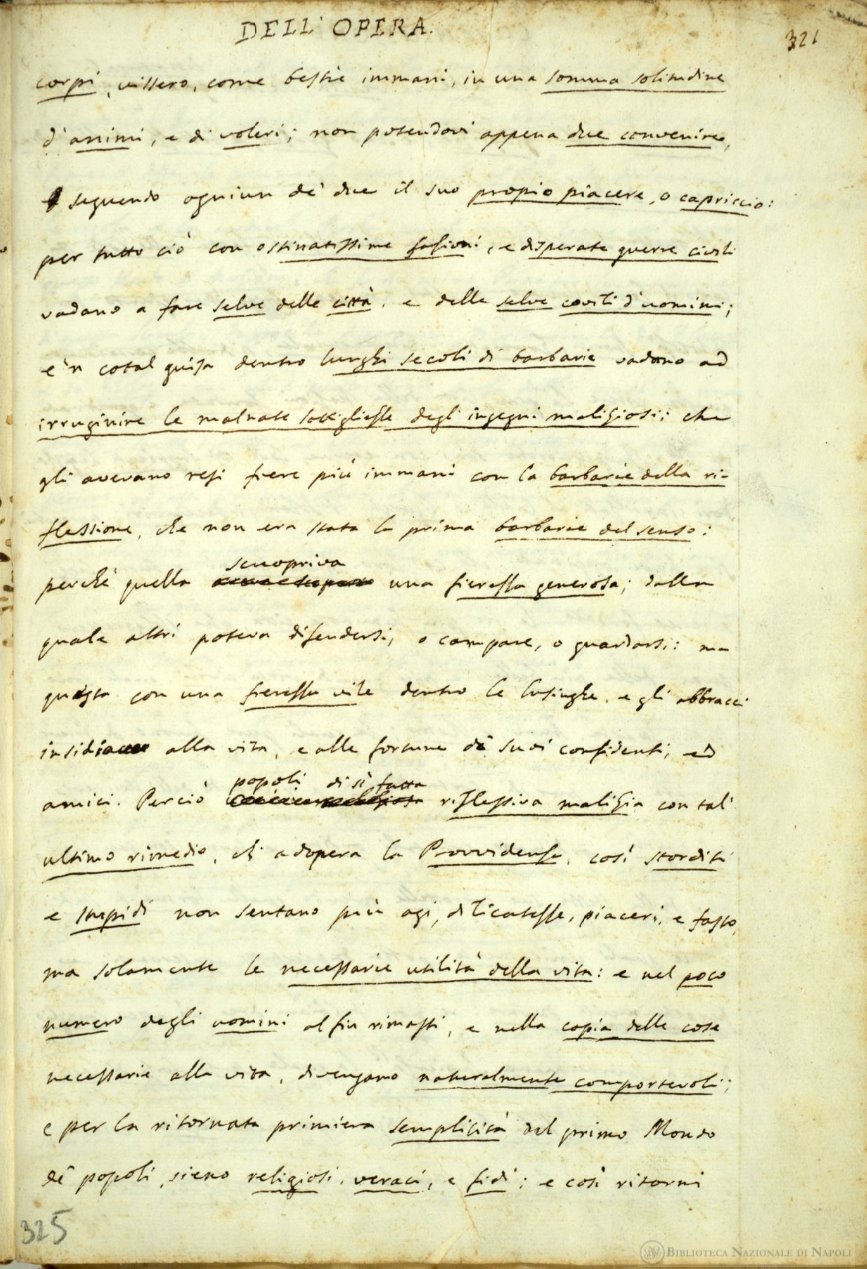 DELL' OPERA.
321
corpi, vissero, come bestie immani, in una somma solitudine
d'animi, e di voleri; non potendovi appena due convenire,
seguendo ogniun de' due il suo propio piacere, o capriccio:
per tutto ciò con ostinatissime fazioni, e disperate guerre civili
vadano a fare selve delle città, e delle selve covili d'uomini;
e 'n cotal guisa dentro lunghi secoli di barbarie vadano ad
irruginire le malnate sottigliezze degli ingegni maliziosi; che
gli avevano resi fiere più immani con la barbarie della ri-
flessione, che non era stata la prima barbarie del senso:
scuopriva
perchè quella una fierezza generosa; dalla
quale altri poteva difendersi, o campare, o guardarsi: ma
questa con una fierezza vile dentro le lusinghe, e gli abbracci
insidia alla vita, e alle fortune de' suoi confidenti, ed
popoli di sì fatta
amici. Perciò riflessiva malizia con tal'
ultimo rimedio, ch' adopera la Provvidenza, così storditi
e stupidi non sentano più agi, dilicatezze, piaceri, e fasto,
ma solamente le necessarie utilità della vita: e nel poco
numero degli uomini al fin rimasti, e nella copia delle cose
necessarie alla vita, divengano naturalmente comportevoli;
e per la ritornata primiera semplicità del primo Mondo
de' popoli, sieno religiosi, veraci, e fidi; e così ritorni
325
BIBLIOTECA NAZIONALE DI NAPOLI